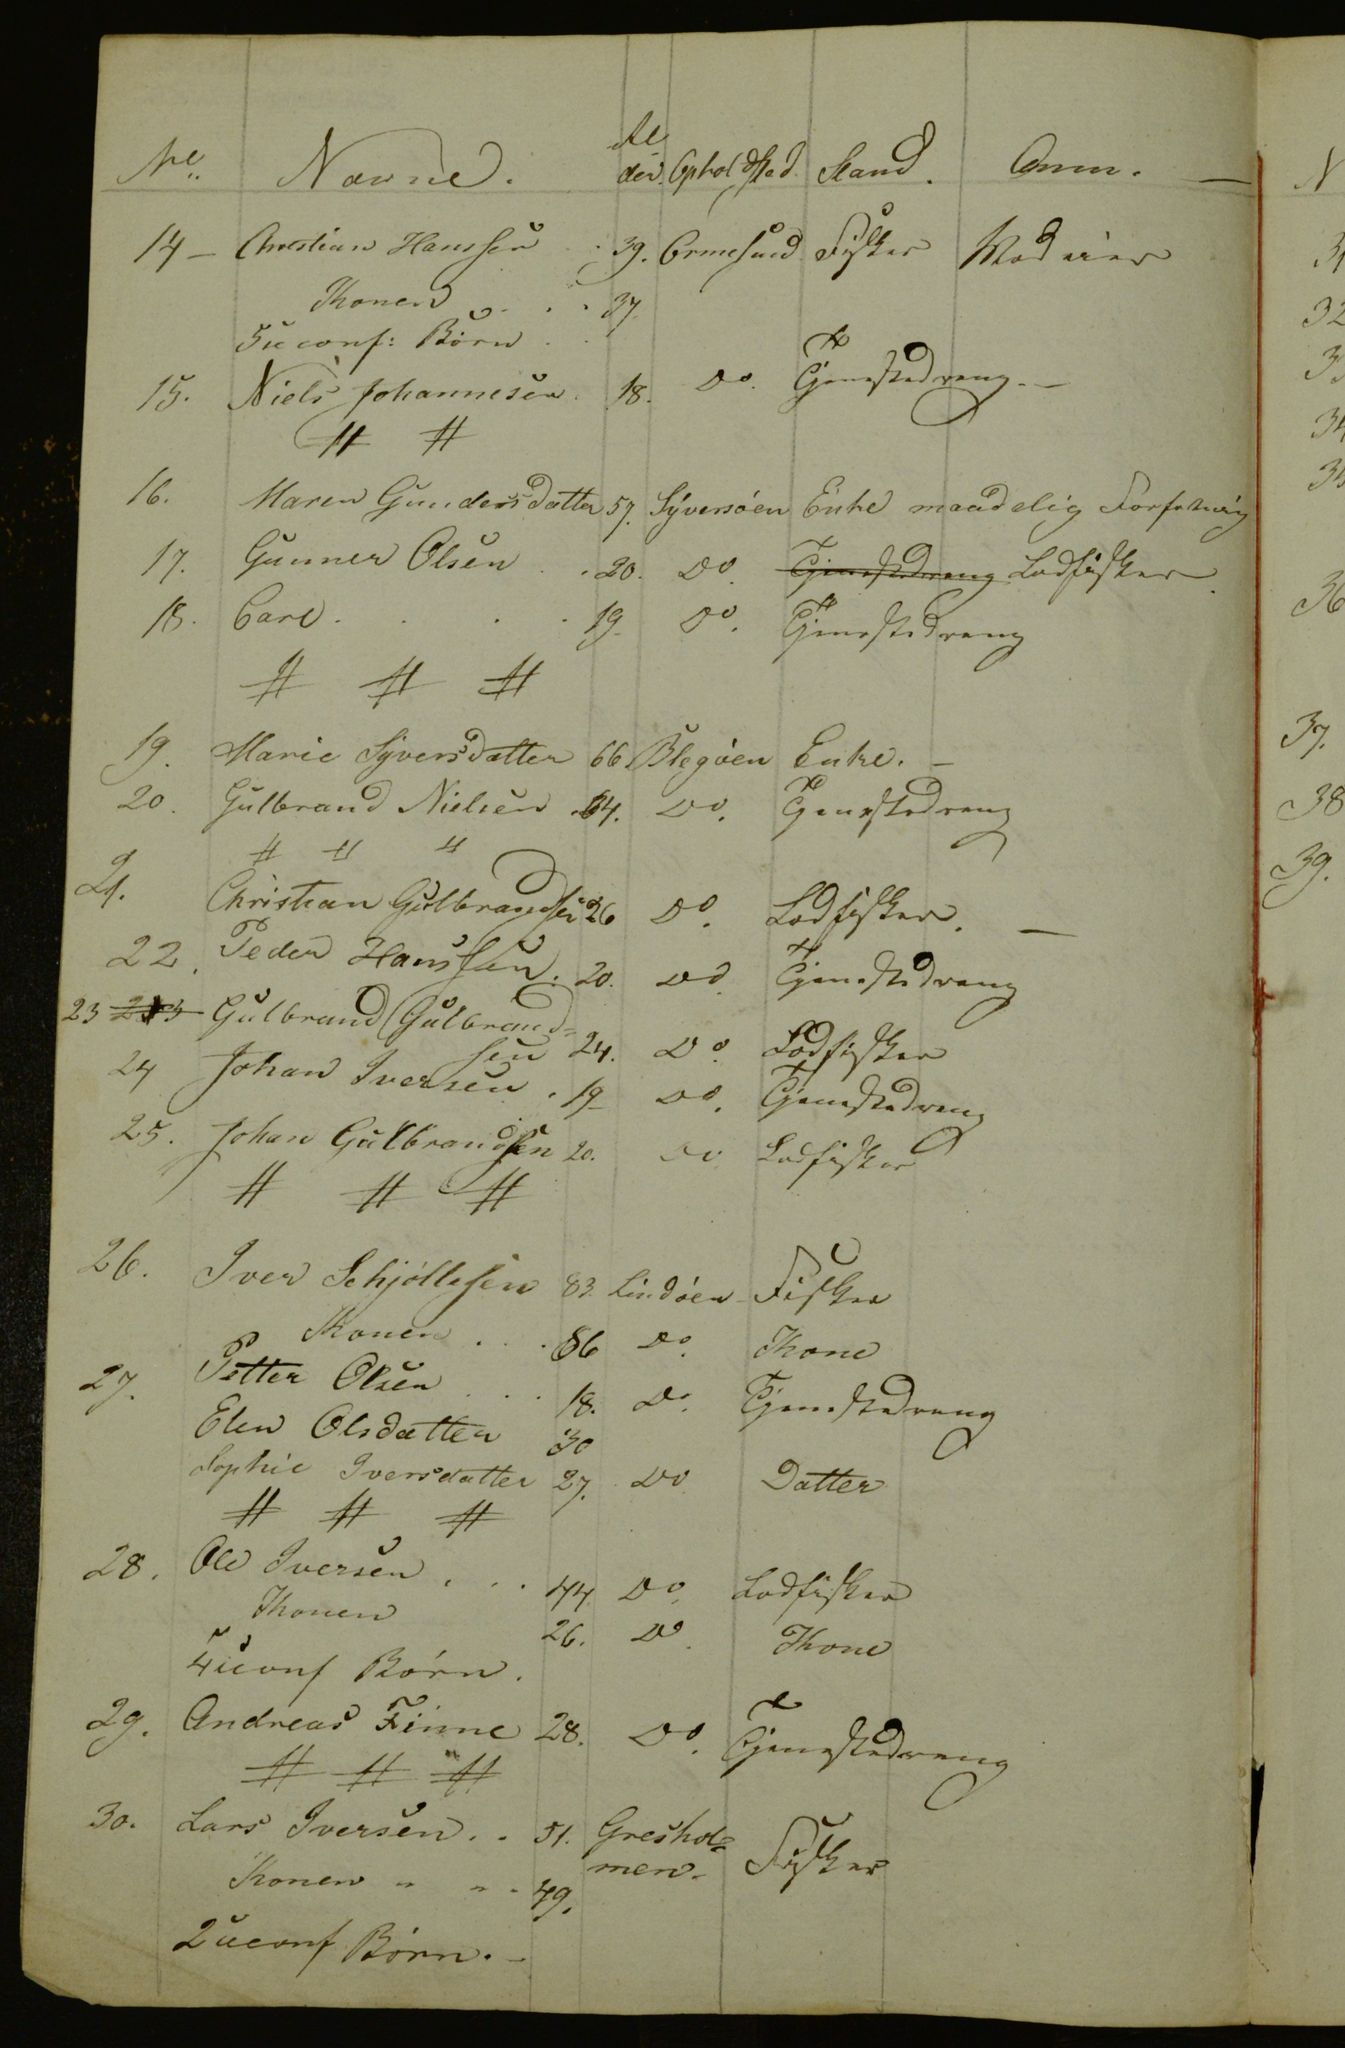 No. Navne. Al
der. Opholdsted. Stand. Anm. —
14 — Christian Hanssen . 39. Ormesund Fisker
Konen . . . 37.
5 uconf: Børn . .
15. Niels Johannesen. 18. Do. Tjenestedreng. —
# #
16. Maren Gundersdatter 57. Syversøen Enke maadelig Forfatning
17. Gunner Olsen . . 20. Do. Tjenestedreng Lodfisker.
18. Carl . . . . 19. Do. Tjenestedreng
# # #
19. Marie Syversdatter 66. Blegøen Enke. —
20. Gulbrand Nielsen . 64. Do. Tjenestedreng
# # #
21. Christian Gulbrandsen 26 Do. Lodfisker. —
22. Peder Hanssen. 20. Do Tjenestedreng
23 Gulbrand Gulbrand=
sen 24. Do. Lodfisker
24 Johan Iversen . 19 Do. Tjenestedreng
25. Johan Gulbrandsen 20. Do Lodfisker
# # #
26. Iver Schjøllesen 83. Lindøen Fisker
Konen . . . 86 Do. Kone
27. Petter Olsen . . . 18. Do. Tjenestedreng
Elen Olsdatter 30
Sophie Iversdatter 27. Do Datter
# # #
28. Ole Iversen . . . 44 Do. Lodfisker
Konen 26. Do. Kone
4 uconf Børn.
29. Andreas Finne 28. Do. Tjenestedreng
# # #
30. Lars Iversen . . 51. Greshol=
men. Fisker
Konen " " . 49.
2 uconf Børn. —
N
31
32
33
34
35
36
37.
38
39.